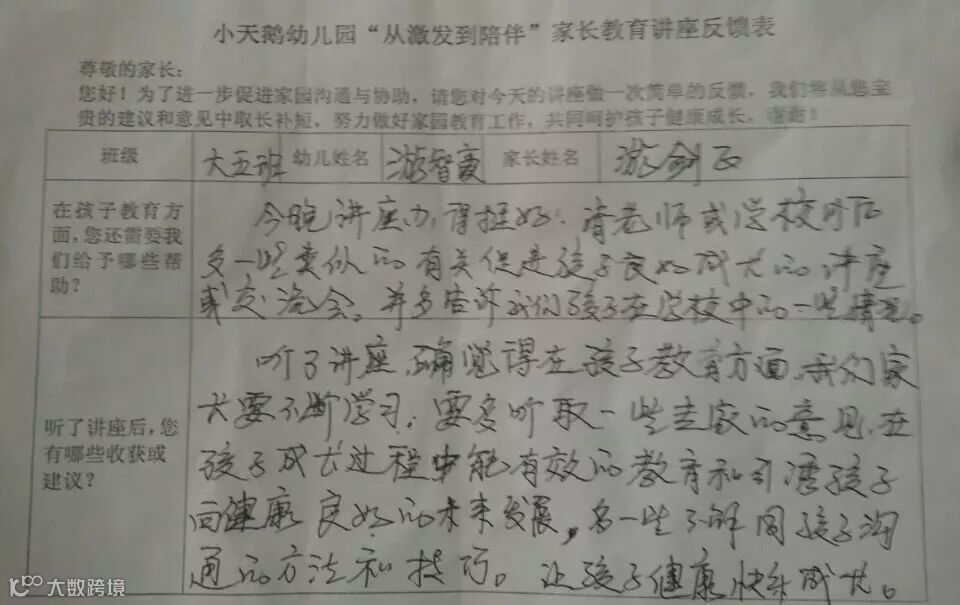 小天鹅幼儿园“从激发到陪伴”家长教育讲座反馈表
尊敬的家长：
您好！为了进一步促进家园沟通与协助，请您对今天的讲座做一次简单的反馈，我们将从您宝
贵的建议和意见中取长补短，努力做好家园教育工作，共同呵护孩子健康成长，谢谢！
班级 大五班 幼儿姓名 游智 家长姓名 游剑
在孩子教育方面，您还需要我们给予哪些帮助？
今晚讲座办得挺好，请老师或学校今后
多一些类似的有关促进孩子良好成长的讲座
或交流会，并多告诉我们孩子在学校中的一些情况。
听了讲座后，您有哪些收获或建议？
听了讲座，确觉得在孩子教育方面，我们家
长要不断学习，要多听取一些专家的意见，在
孩子成长过程中能有效的教育和引导孩子
向健康良好的未来发展，多一些了解同孩子沟
通的方法和技巧。让孩子健康快乐成长。
大数跨境